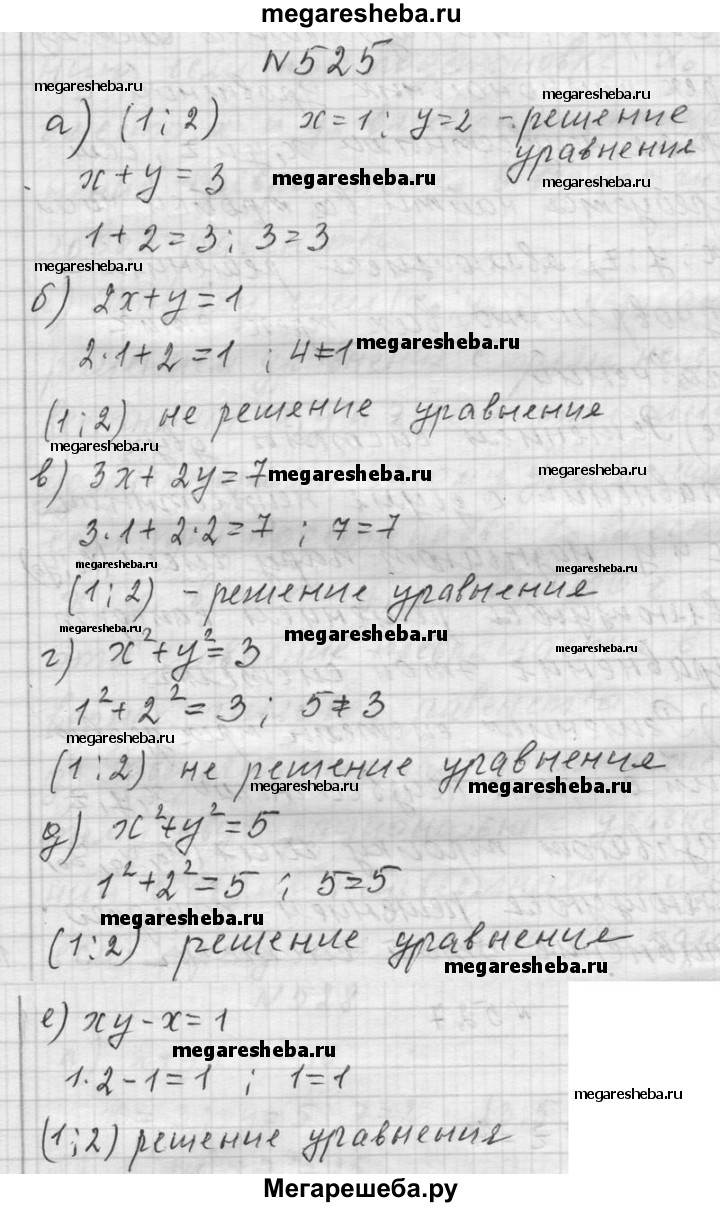 megaresheba.ru
N525
megaresheba.ru
megaresheba.ru
а) (1; 2) x=1; y=2 - решение
уравнения
x+y=3
megaresheba.ru
megaresheba.ru
1+2=3; 3=3
megaresheba.ru
б) 2x+y=1
2·1+2=1 ; 4≠1
megaresheba.ru
(1;2) не решение уравнения
megaresheba.ru
в) 3x+2y=7
megaresheba.ru
megaresheba.ru
3·1+2·2=7 ; 7=7
megaresheba.ru
megaresheba.ru
(1;2) - решение уравнения
megaresheba.ru
megaresheba.ru
г) x²+y²=3
megaresheba.ru
1²+2²=3; 5≠3
megaresheba.ru
(1;2) не решение уравнения
megaresheba.ru
megaresheba.ru
д) x²+y²=5
1²+2²=5 ; 5=5
megaresheba.ru
(1;2) решение уравнения
megaresheba.ru
е) xy-x=1
megaresheba.ru
1·2-1=1 ; 1=1
megaresheba.ru
(1;2) решение уравнения
Мегарешеба.ру